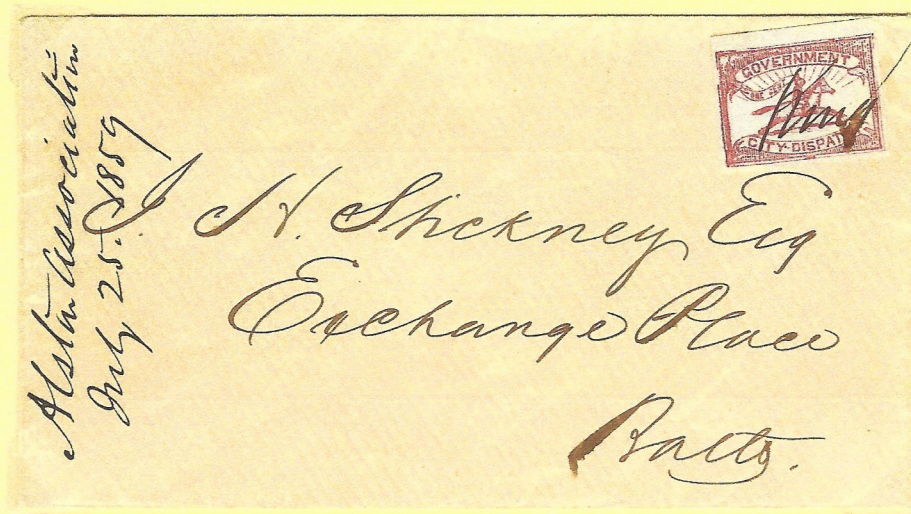 Alston Association
July 25. 1859
GOVERNMENT
ONE CENT
CITY-DISPATCH
J H. Stickney Esq
Exchange Place
Balto.